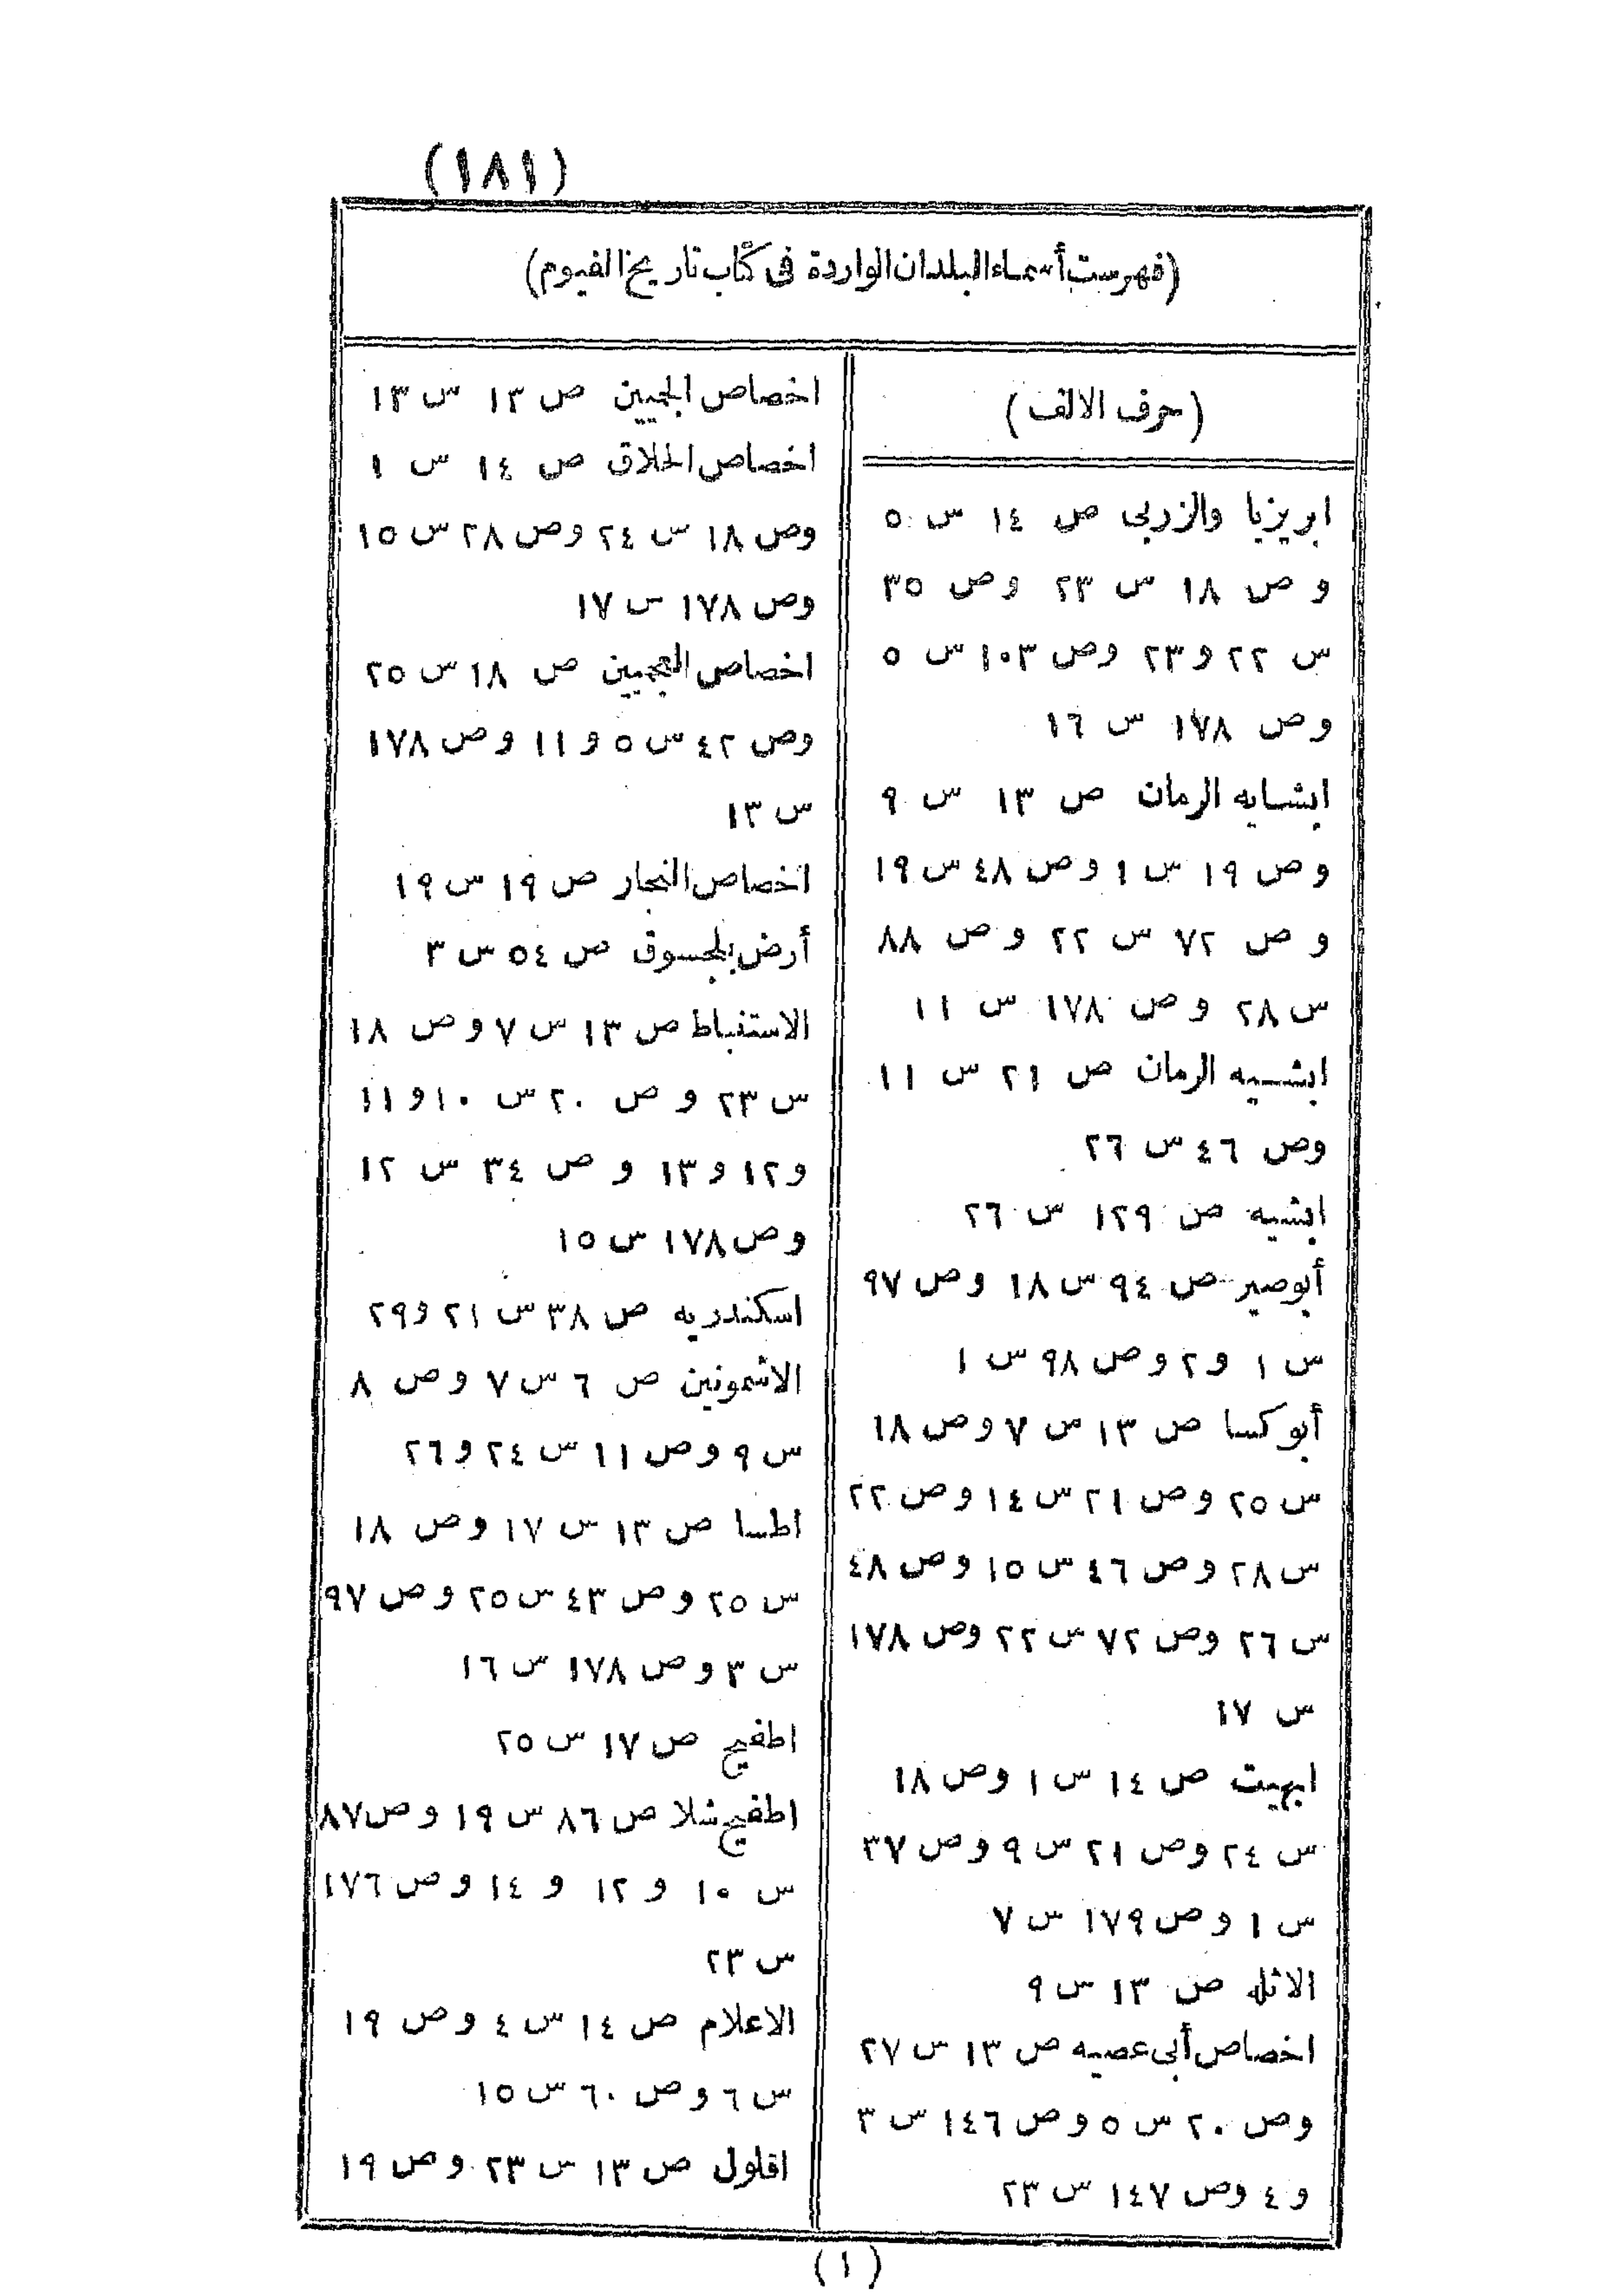 (١٨١)
(فهرست أسماء البلدان الواردة فى كتاب تاريخ الفيوم)
(حرف الالف)
ابريزيا والزربى ص ١٤ س ٥
و ص ١٨ س ٢٣ وص ٣٥
س ٢٢ و٢٣ وص ١٠٣ س ٥
وص ١٧٨ س ١٦
ابشايه الرمان ص ١٣ س ٩
وص ١٩ س ١ وص ٤٨ س ١٩
و ص ٧٢ س ٢٢ وص ٨٨
س ٢٨ وص ١٧٨ س ١١
ابشيه الرمان ص ٢١ س ١١
وص ٤٦ س ٢٦
ابشيه ص ١٢٩ س ٢٦
أبوصير ص ٩٤ س ١٨ وص ٩٧
س ١ و٢ وص ٩٨ س ١
أبوكسا ص ١٣ س ٧ وص ١٨
س ٢٥ وص ٢١ س ١٤ وص ٢٢
س ٢٨ وص ٤٦ س ١٥ وص ٤٨
س ٢٦ وص ٧٢ س ٢٢ وص ١٧٨
س ١٧
ابهيت ص ١٤ س ١ وص ١٨
س ٢٤ وص ٢١ س ٩ وص ٣٧
س ١ وص ١٧٩ س ٧
الاثله ص ١٣ س ٩
اخصاص أبى عصيه ص ١٣ س ٢٧
وص ٢٠ س ٥ وص ١٤٦ س ٣
و ٤ وص ١٤٧ س ٢٣
اخصاص الجميين ص ١٣ س ١٣
اخصاص الحلاق ص ١٤ س ١
وص ١٨ س ٢٤ وص ٢٨ س ١٥
وص ١٧٨ س ١٧
اخصاص العجميين ص ١٨ س ٢٥
وص ٤٢ س ٥ و ١١ وص ١٧٨
س ١٣
اخصاص النجار ص ١٩ س ١٩
أرض بلجسوق ص ٥٤ س ٣
الاستنباط ص ١٣ س ٧ وص ١٨
س ٢٣ وص ٢٠ س ١٠ و١١
و١٢ و١٣ وص ٣٤ س ١٢
وص ١٧٨ س ١٥
اسكندريه ص ٣٨ س ٢١ و٢٩
الاشمونين ص ٦ س ٧ وص ٨
س ٩ وص ١١ س ٢٤ و٢٦
اطسا ص ١٣ س ١٧ وص ١٨
س ٢٥ وص ٤٣ س ٢٥ وص ٩٧
س ٣ وص ١٧٨ س ١٦
اطفيح ص ١٧ س ٢٥
اطفيح شلا ص ٨٦ س ١٩ وص ٨٧
س ١٠ و ١٢ و ١٤ وص ١٧٦
س ٢٣
الاعلام ص ١٤ س ٤ وص ١٩
س ٦ وص ٦٠ س ١٥
اقلول ص ١٣ س ٢٣ وص ١٩
(١)